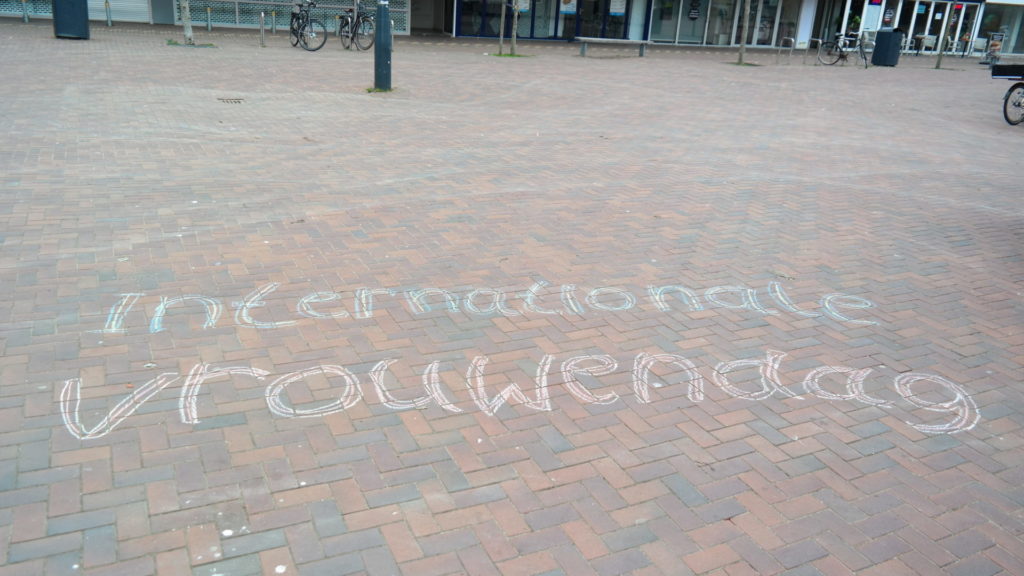 Internationale
vrouwendag